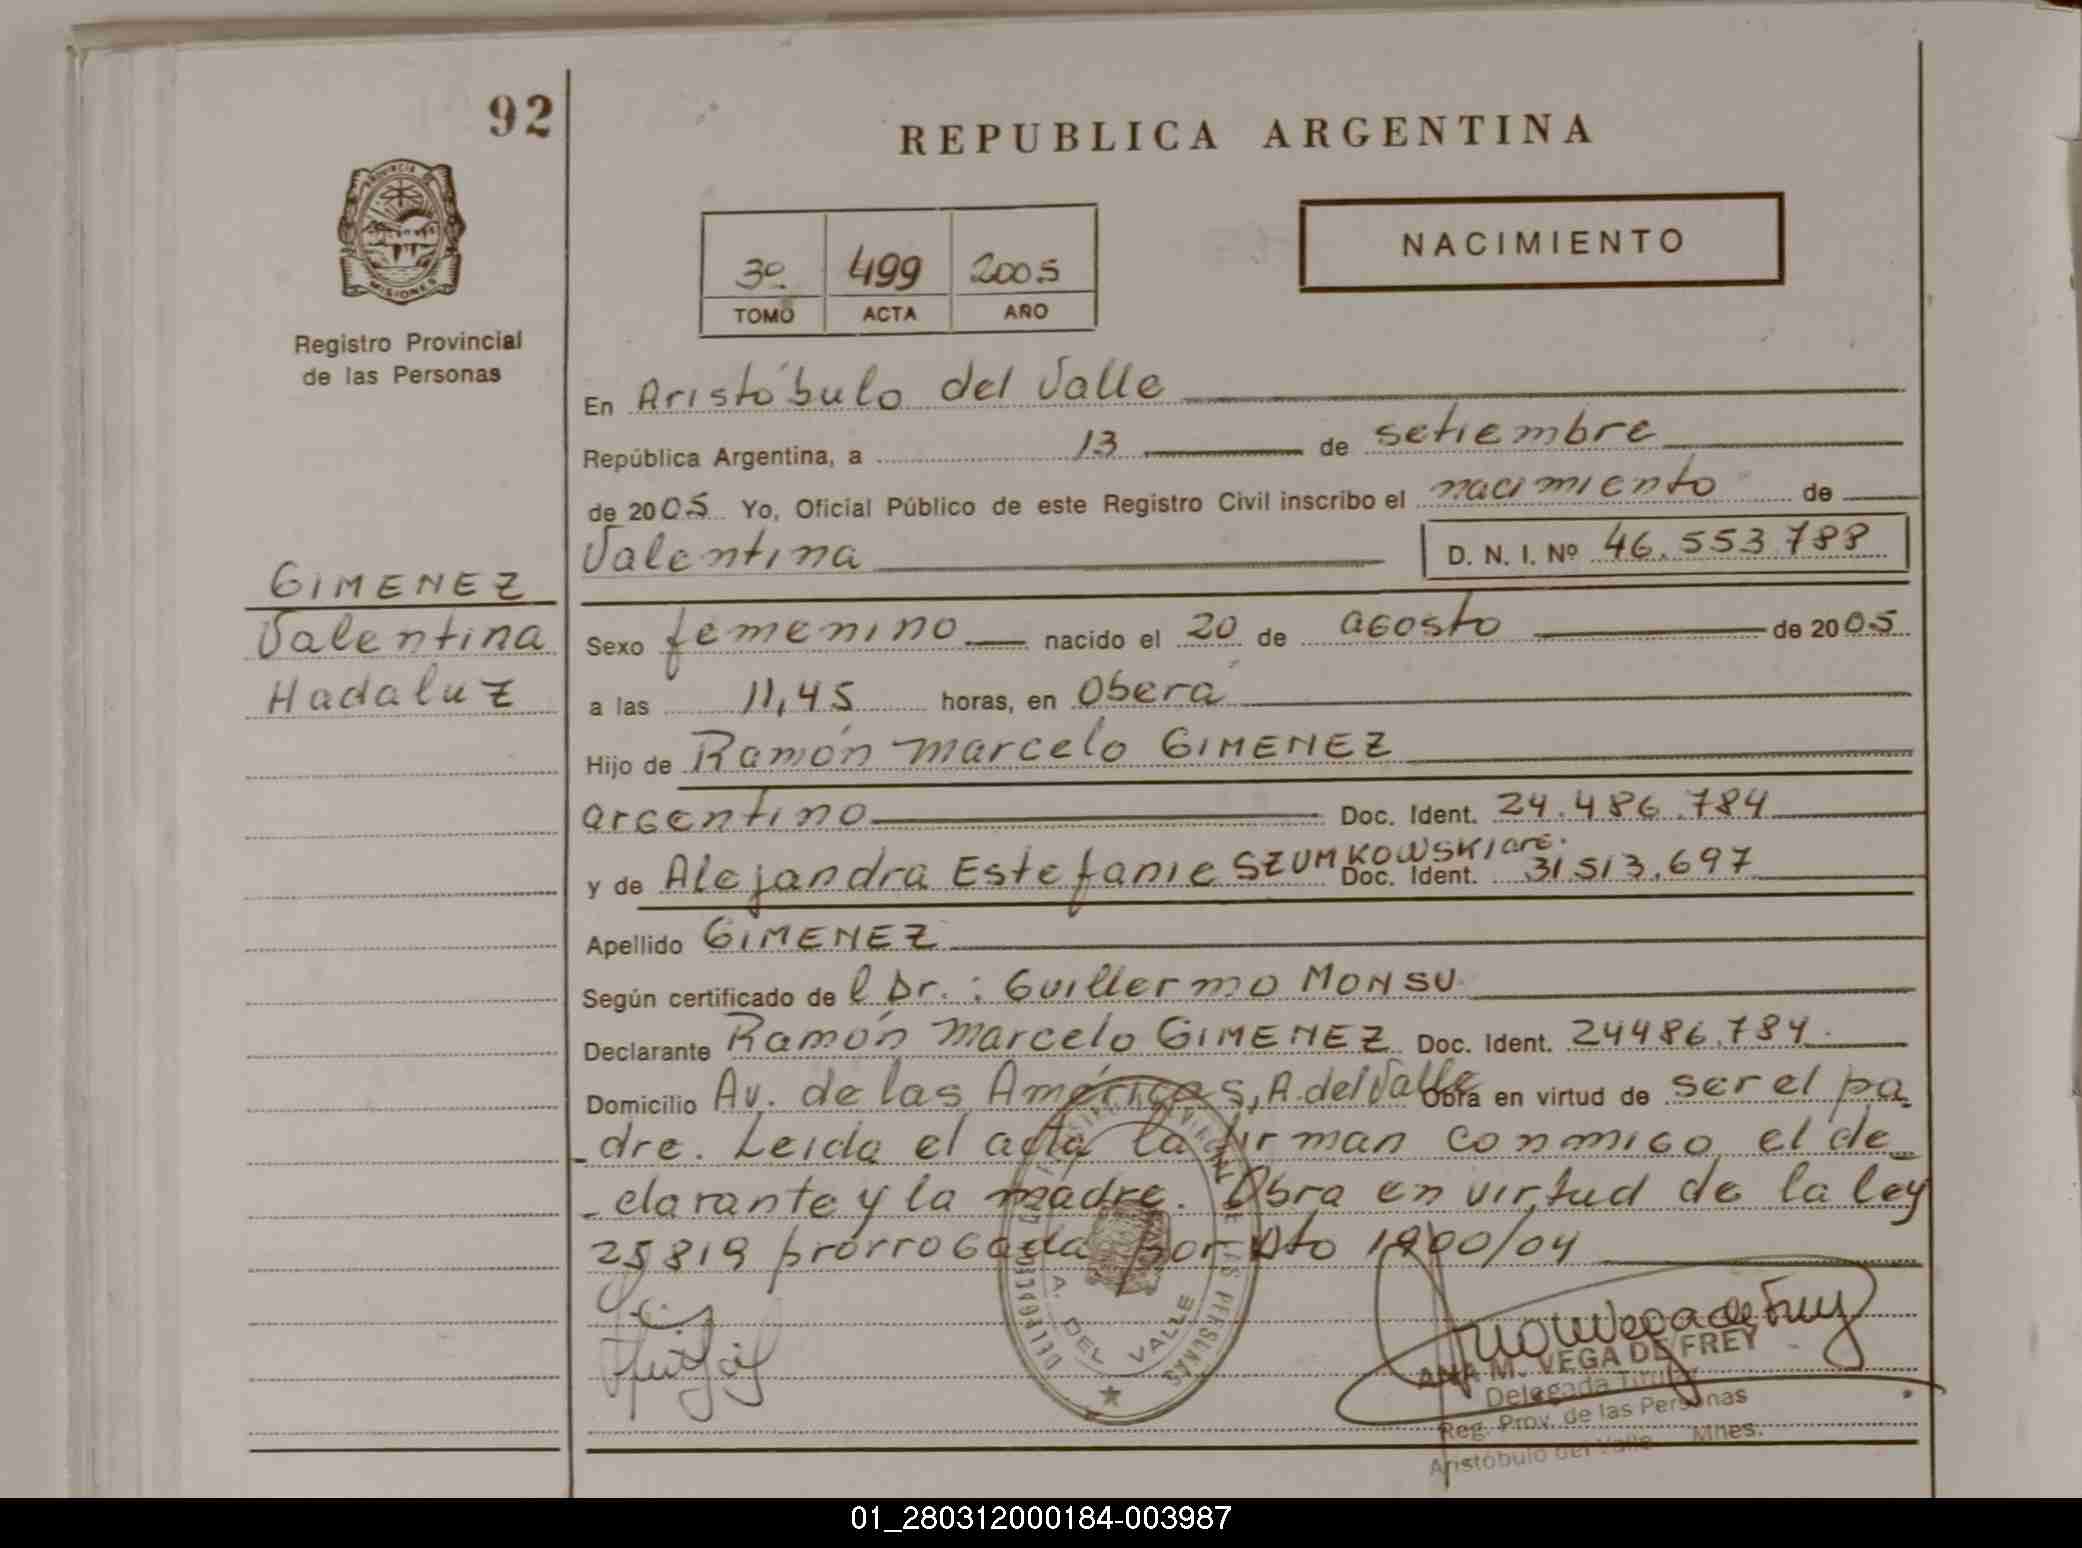 92
REPUBLICA ARGENTINA
PROVINCIA DE
MISIONES
Registro Provincial
de las Personas
3º 499 2005
TOMO ACTA AÑO
NACIMIENTO
GIMENEZ
Valentina
Hadaluz
En Aristóbulo del Valle
República Argentina, a 13 de setiembre
de 2005 Yo, Oficial Público de este Registro Civil inscribo el nacimiento de
Valentina D. N. I. Nº 46.553.788
Sexo femenino nacido el 20 de agosto de 2005
a las 11,45 horas, en Oberá
Hijo de Ramón Marcelo GIMENEZ
argentino Doc. Ident. 24.486.784
y de Alejandra Estefanie SZUMKOWSKI arg. Doc. Ident. 31.513.697
Apellido GIMENEZ
Según certificado de l Dr.: Guillermo MONSU
Declarante Ramón Marcelo GIMENEZ Doc. Ident. 24486.784.
Domicilio Av. de las Américas, A. del Valle Obra en virtud de ser el pa
dre. Leida el acta la firman conmigo el de
clarante y la madre. Obra en virtud de la ley
25819 prorrogada por Dto 1900/04
A. DEL VALLE
ANA M. VEGA DE FREY
Delegada Titular
Reg. Prov. de las Personas
Aristóbulo del Valle Mnes.
01_280312000184-003987